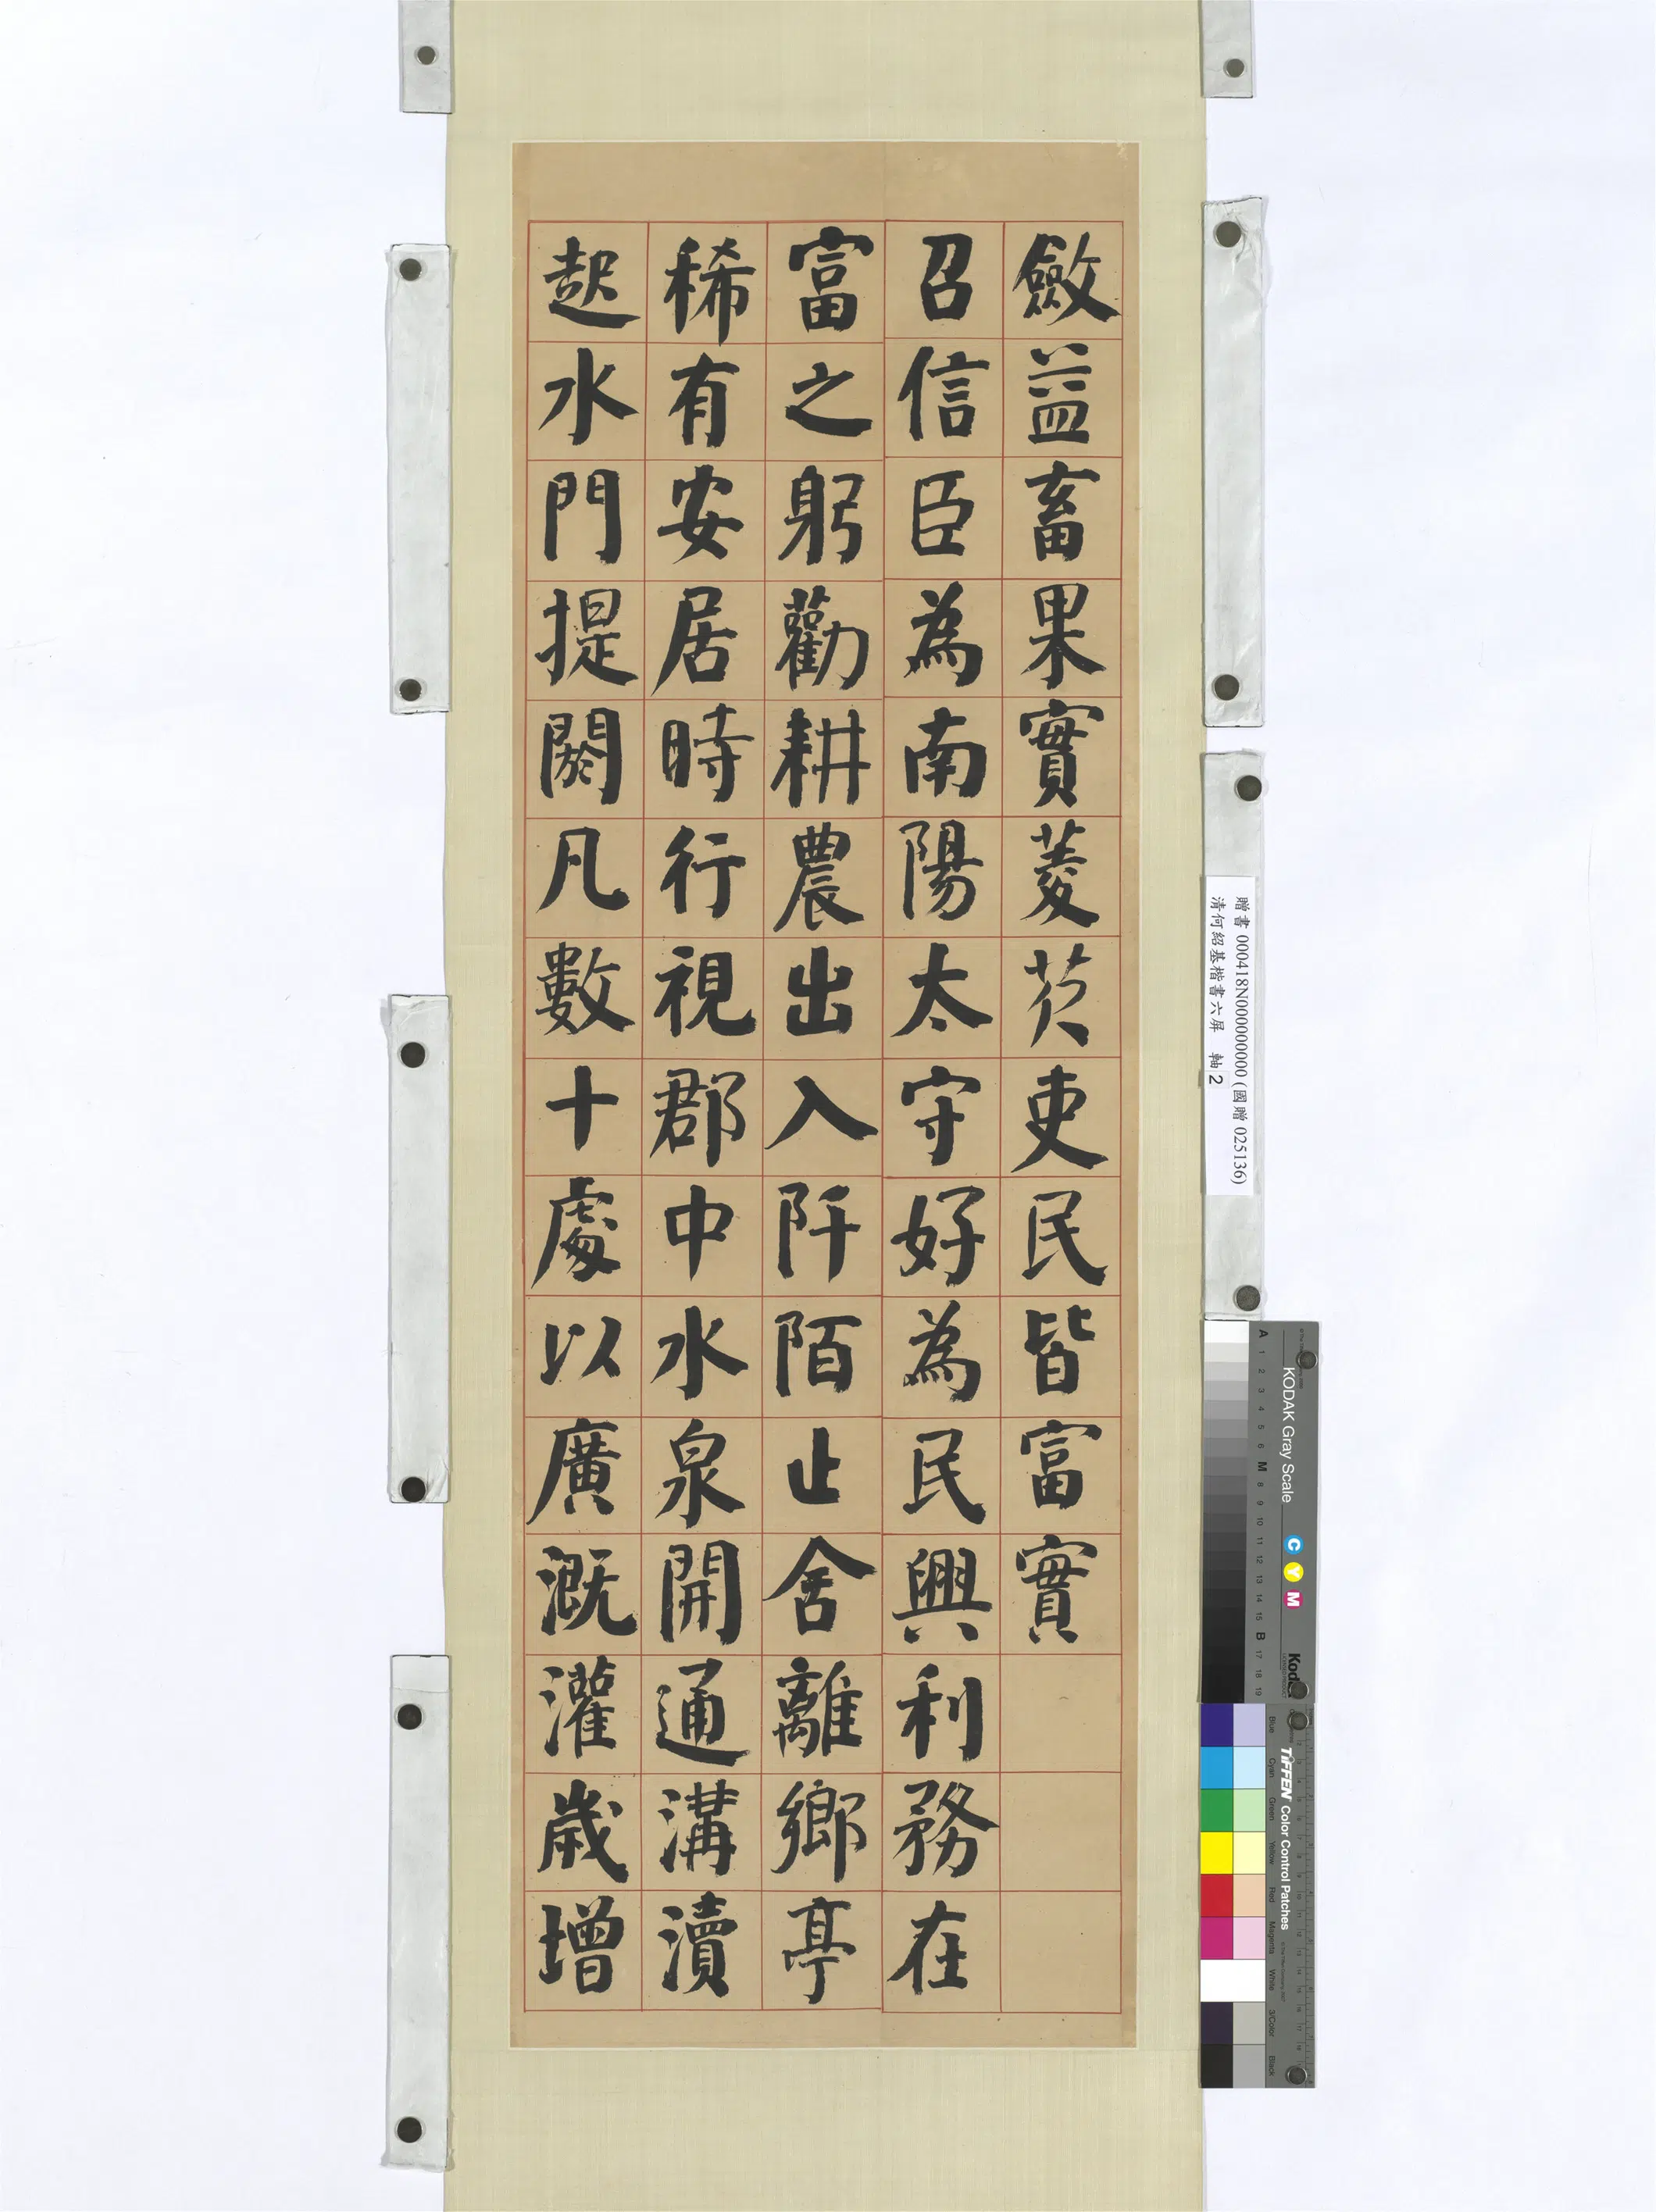 斂益畜果實菱芡吏民皆富實
召信臣為南陽太守好為民興利務在
富之躬勸耕農出入阡陌止舍離鄉亭
稀有安居時行視郡中水泉開通溝瀆
起水門提閼凡數十處以廣溉灌歲增
贈書 000418N000000000 (國贈 025136)
清何紹基楷書六屏 軸2
KODAK Gray Scale
C Y M
Kodak
A 1 2 3 4 5 6 M 8 9 10 11 12 13 14 15 B 17 18 19
TIFFEN Color Control Patches
Blue Cyan Green Yellow Red Magenta White 3/Color Black